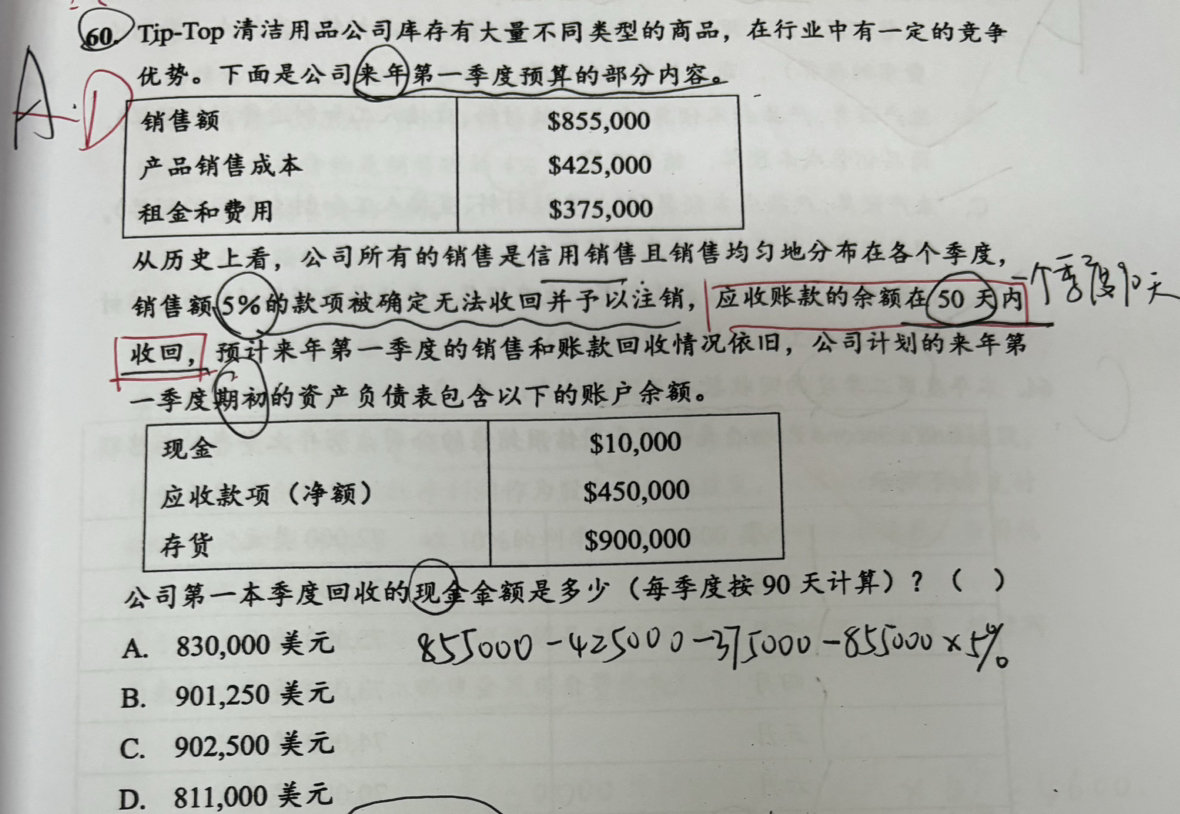 60. Tip-Top 清洁用品公司库存有大量不同类型的商品，在行业中有一定的竞争
A. D
优势。下面是公司来年第一季度预算的部分内容。
销售额 $855,000
产品销售成本 $425,000
租金和费用 $375,000
从历史上看，公司所有的销售是信用销售且销售均匀地分布在各个季度，
销售额 5%的款项被确定无法收回并予以注销，应收账款的余额在 50 天内 一个季度90天
收回，预计来年第一季度的销售和账款回收情况依旧，公司计划的来年第
一季度期初的资产负债表包含以下的账户余额。
现金 $10,000
应收款项（净额） $450,000
存货 $900,000
公司第一本季度回收的现金金额是多少（每季度按 90 天计算）？（ ）
A. 830,000 美元 855000-425000-375000-855000×5%
B. 901,250 美元
C. 902,500 美元
D. 811,000 美元